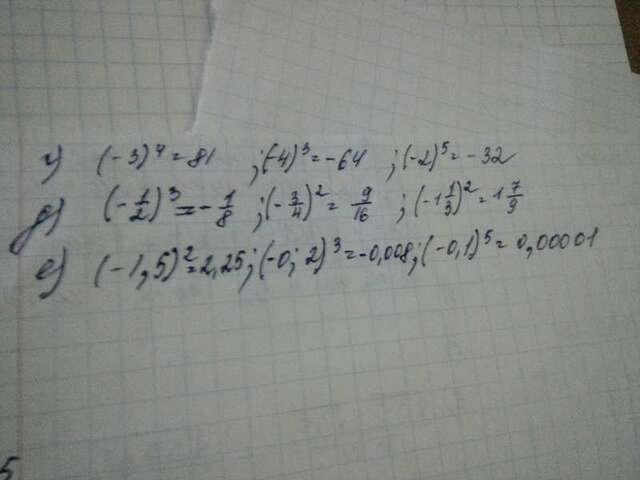 г) (-3)⁴=81 ; (-4)³=-64 ; (-2)⁵=-32
д) (-1/2)³=-1/8 ; (-3/4)²=9/16 ; (-1 1/3)²=1 7/9
е) (-1,5)²=2,25; (-0;2)³=-0,008; (-0,1)⁵=0,00001
5